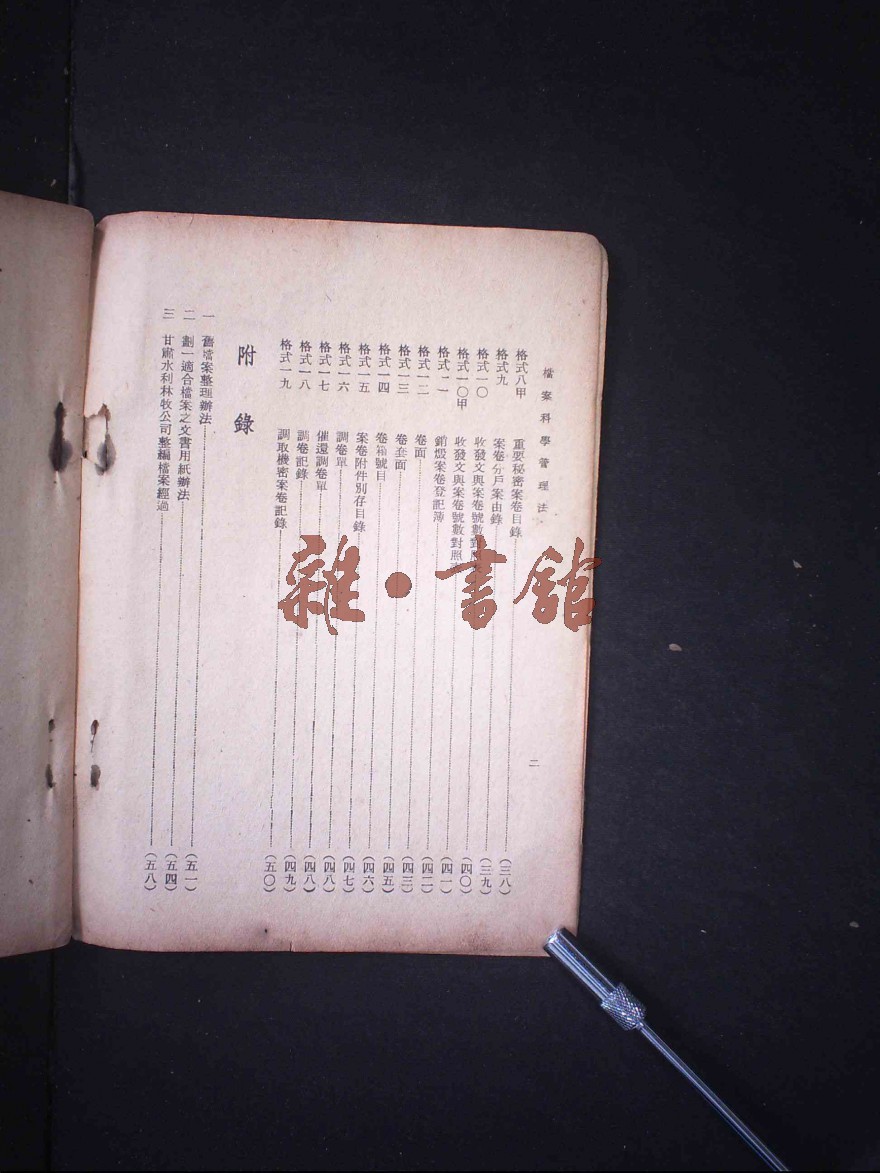 檔案科學管理法 二
格式八甲 重要秘密案卷目錄……(三八)
格式九 案卷分戶案由錄……(三九)
格式一〇 收發文與案卷號數對照……(四〇)
格式一〇甲 收發文與案卷號數對照……(四一)
格式一一 銷燬案卷登記簿……(四二)
格式一二 卷面……(四三)
格式一三 卷套面……(四五)
格式一四 卷箱號目……(四六)
格式一五 案卷附件別存目錄……(四七)
格式一六 調卷單……(四八)
格式一七 催還調卷單……(四八)
格式一八 調卷記錄……(四九)
格式一九 調取機密案卷記錄……(五〇)
附錄
一 舊檔案整理辦法……(五一)
二 劃一適合檔案之文書用紙辦法……(五四)
三 甘肅水利林牧公司整編檔案經過……(五八)
雜·書館